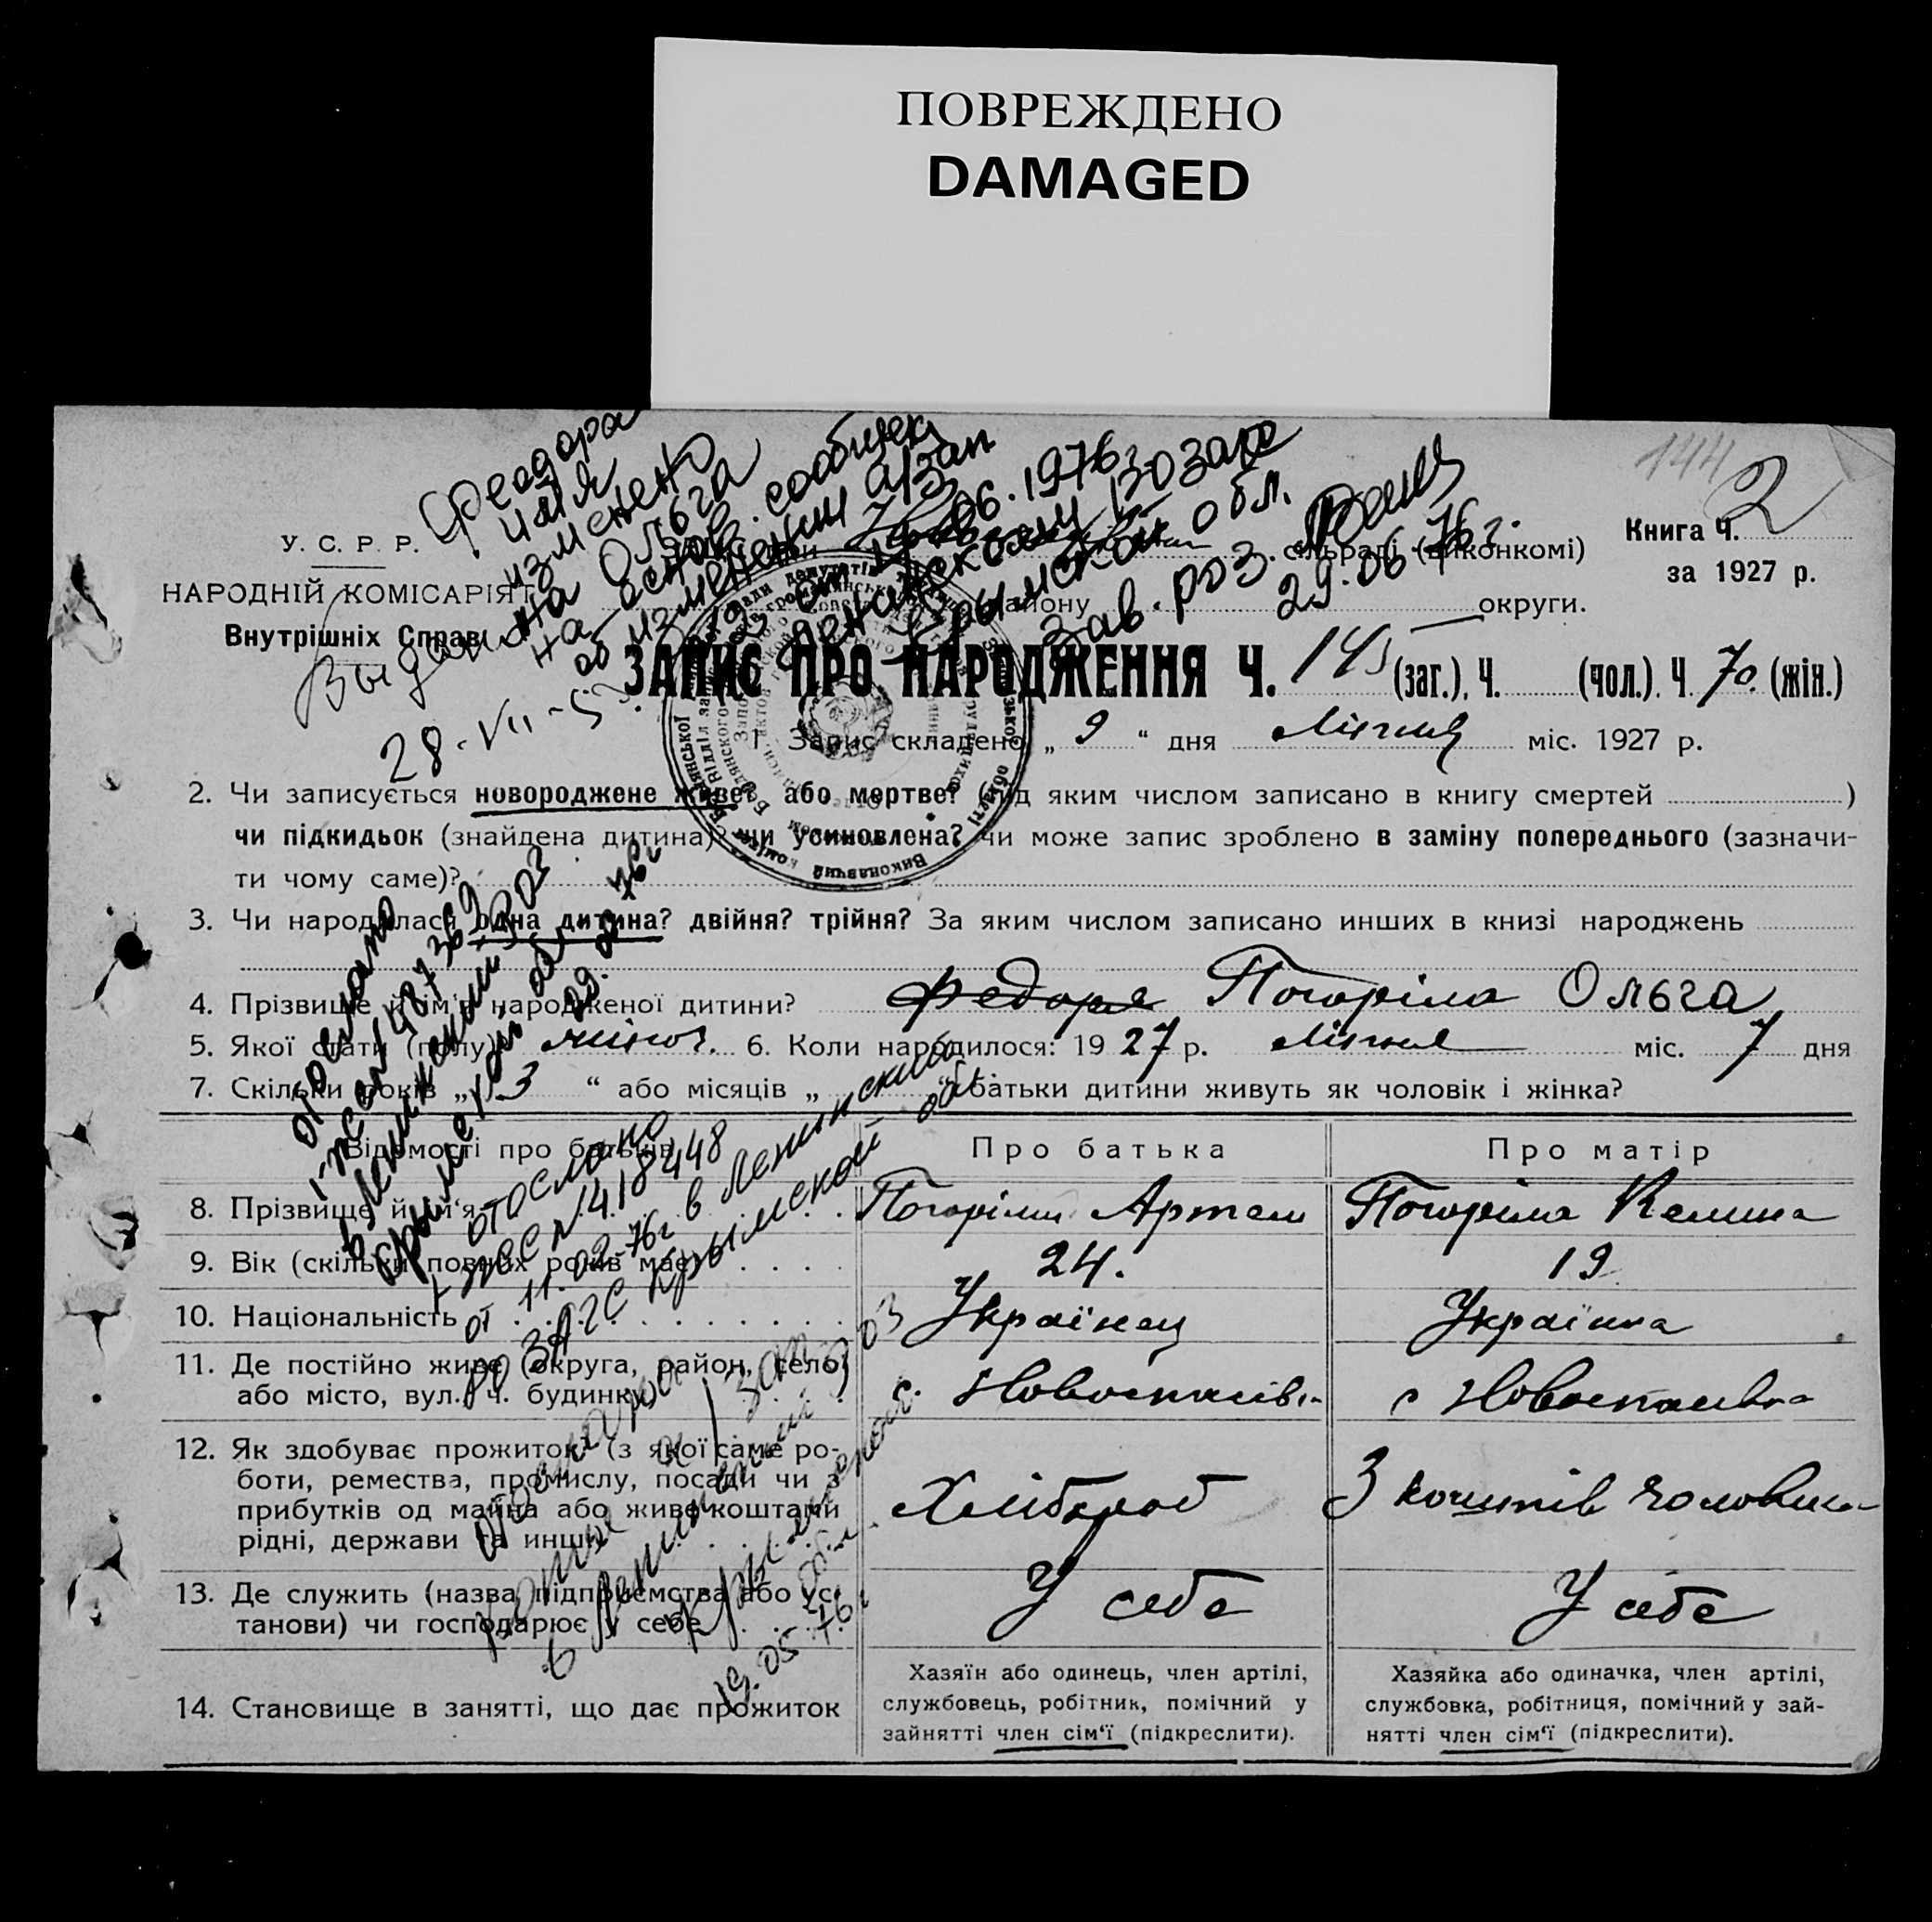 ПОВРЕЖДЕНО
DAMAGED
144
2
Феодора
имя
изменено
на Ольга
на основ. сообщен
об изменении а/зап
06.1976
обл.
Зав. роз
29.06.76 г.
Выдано
28-VII-5
У. С. Р. Р.
НАРОДНІЙ КОМІСАРІЯТ
Внутрішніх Справ
сільраді (виконкомі)
району округи.
Книга Ч.
за 1927 р.
ЗАПИС ПРО НАРОДЖЕННЯ Ч. 145 (заг.), Ч. (чол.). Ч. 70. (жін.)
1. Запис складено „ 9 “ дня Липня міс. 1927 р.
2. Чи записується новороджене живе? або мертве? (під яким числом записано в книгу смертей )
чи підкидьок (знайдена дитина) чи усиновлена? чи може запис зроблено в заміну попереднього (зазначи-
ти чому саме)?
3. Чи народилась одна дитина? двійня? трійня? За яким числом записано инших в книзі народжень
4. Прізвище й ім'я народженої дитини? Федора Погоріла Ольга
5. Якої стати (полу) жіноч. 6. Коли народилося: 1927 р. Липня міс. 7 дня
7. Скільки років „ 3 “ або місяців „ “ батьки дитини живуть як чоловік і жінка?
Відомості про батьків
Про батька
Про матір
8. Прізвище й ім'я
Погорілий Артем
Погоріла Келина
9. Вік (скільки повних років має)
24.
19
10. Національність
Українец
Українка
11. Де постійно живе (округа, район, село,
або місто, вул. ч. будинку)
с. Новоспасівк
с Новоспасівка
12. Як здобуває прожиток? (з якої саме ро-
боти, ремества, промислу, посади чи з
прибутків од майна або живе коштами
рідні, держави та инш.)
Хлібороб
З коштів чоловіка
13. Де служить (назва підприємства або ус-
танови) чи господарює у себе
У себе
У себе
14. Становище в занятті, що дає прожиток
Хазяїн або одинець, член артілі,
службовець, робітник, помічний у
зайнятті член сім'ї (підкреслити).
Хазяйка або одиначка, член артілі,
службовка, робітниця, помічний у зай-
нятті член сім'ї (підкреслити).
отослано
в Ленинский
отослано
N 418448
от 11.02.76г в Ленинский
ро ЗАГС Крымской обл.
19.05.76 г